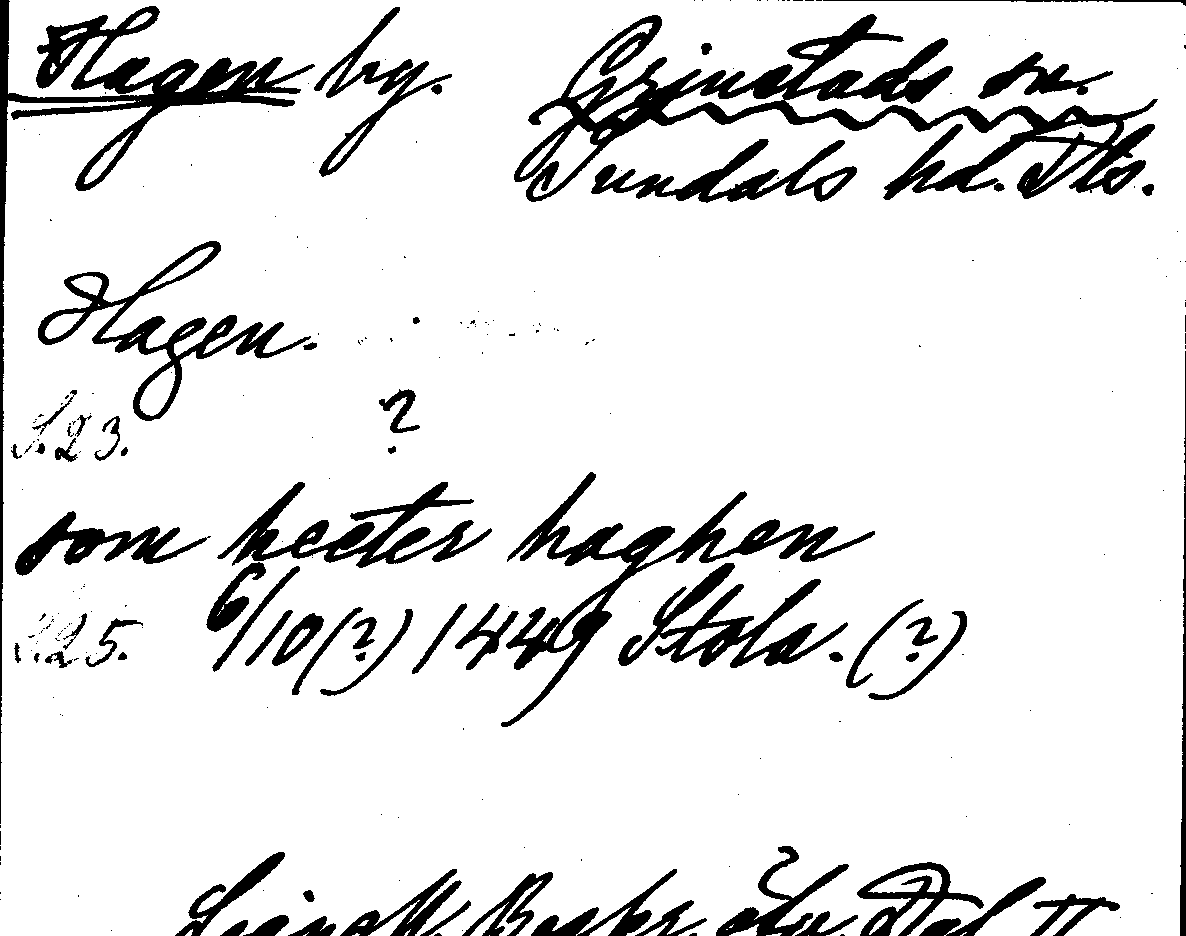 Hagen by. Grinstads sn.
Sundals hd. Dls.
Hagen.
S. 23. ?
som heeter haghen
S. 25. 6/10 (?) 1449 Stola. (?)
Lignell, Beskr. öfv. Dal II